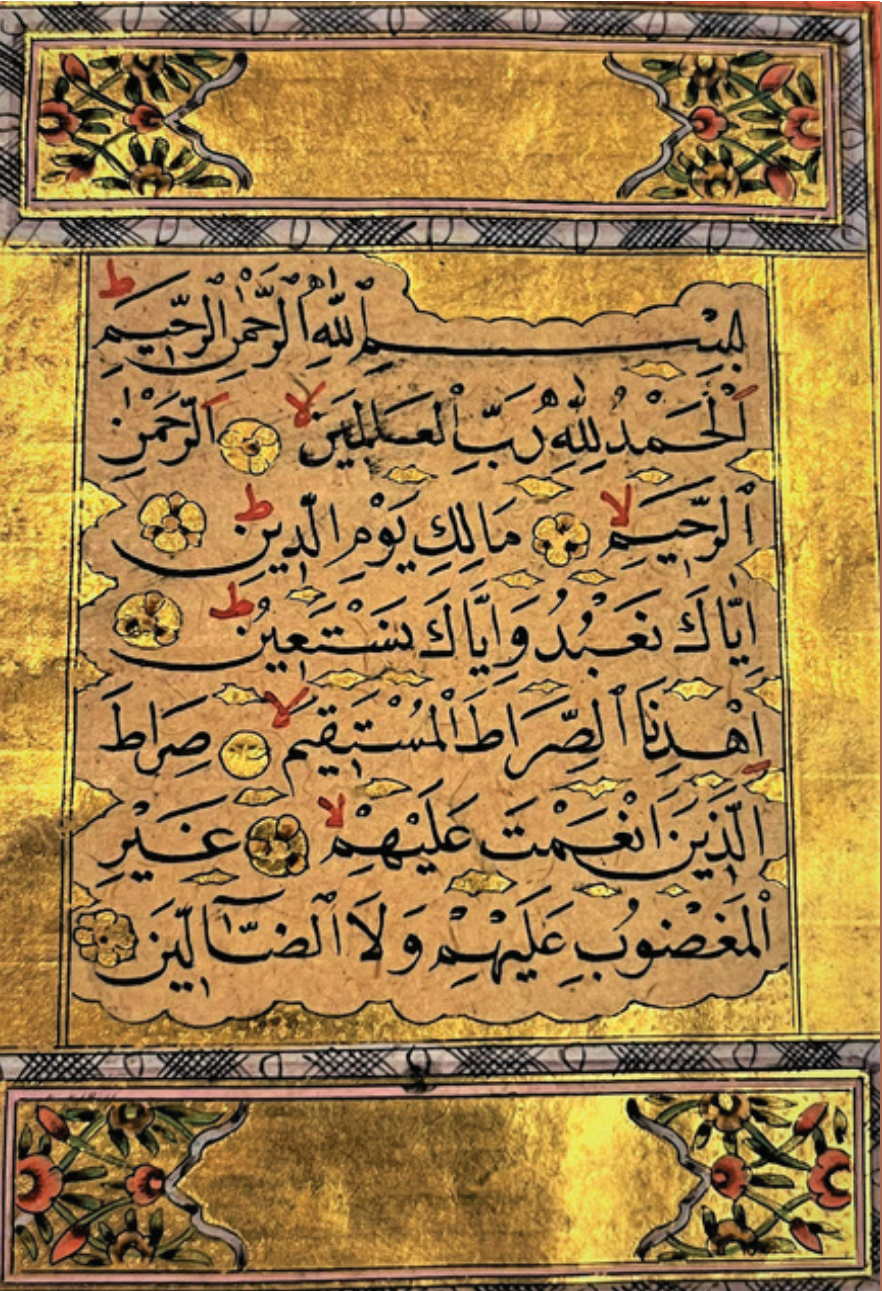 بِسْمِ اللّٰهِ الرَّحْمٰنِ الرَّحِيمِ ط
اَلْحَمْدُ لِلّٰهِ رَبِّ الْعَالَمِينَ لا اَلرَّحْمٰنِ
الرَّحِيمِ لا مَالِكِ يَوْمِ الدِّينِ ط
اِيَّاكَ نَعْبُدُ وَاِيَّاكَ نَسْتَعِينُ ط
اِهْدِنَا الصِّرَاطَ الْمُسْتَقِيمَ لا صِرَاطَ
الَّذِينَ اَنْعَمْتَ عَلَيْهِمْ لا غَيْرِ
الْمَغْضُوبِ عَلَيْهِمْ وَلَا الضَّٓالِّينَ